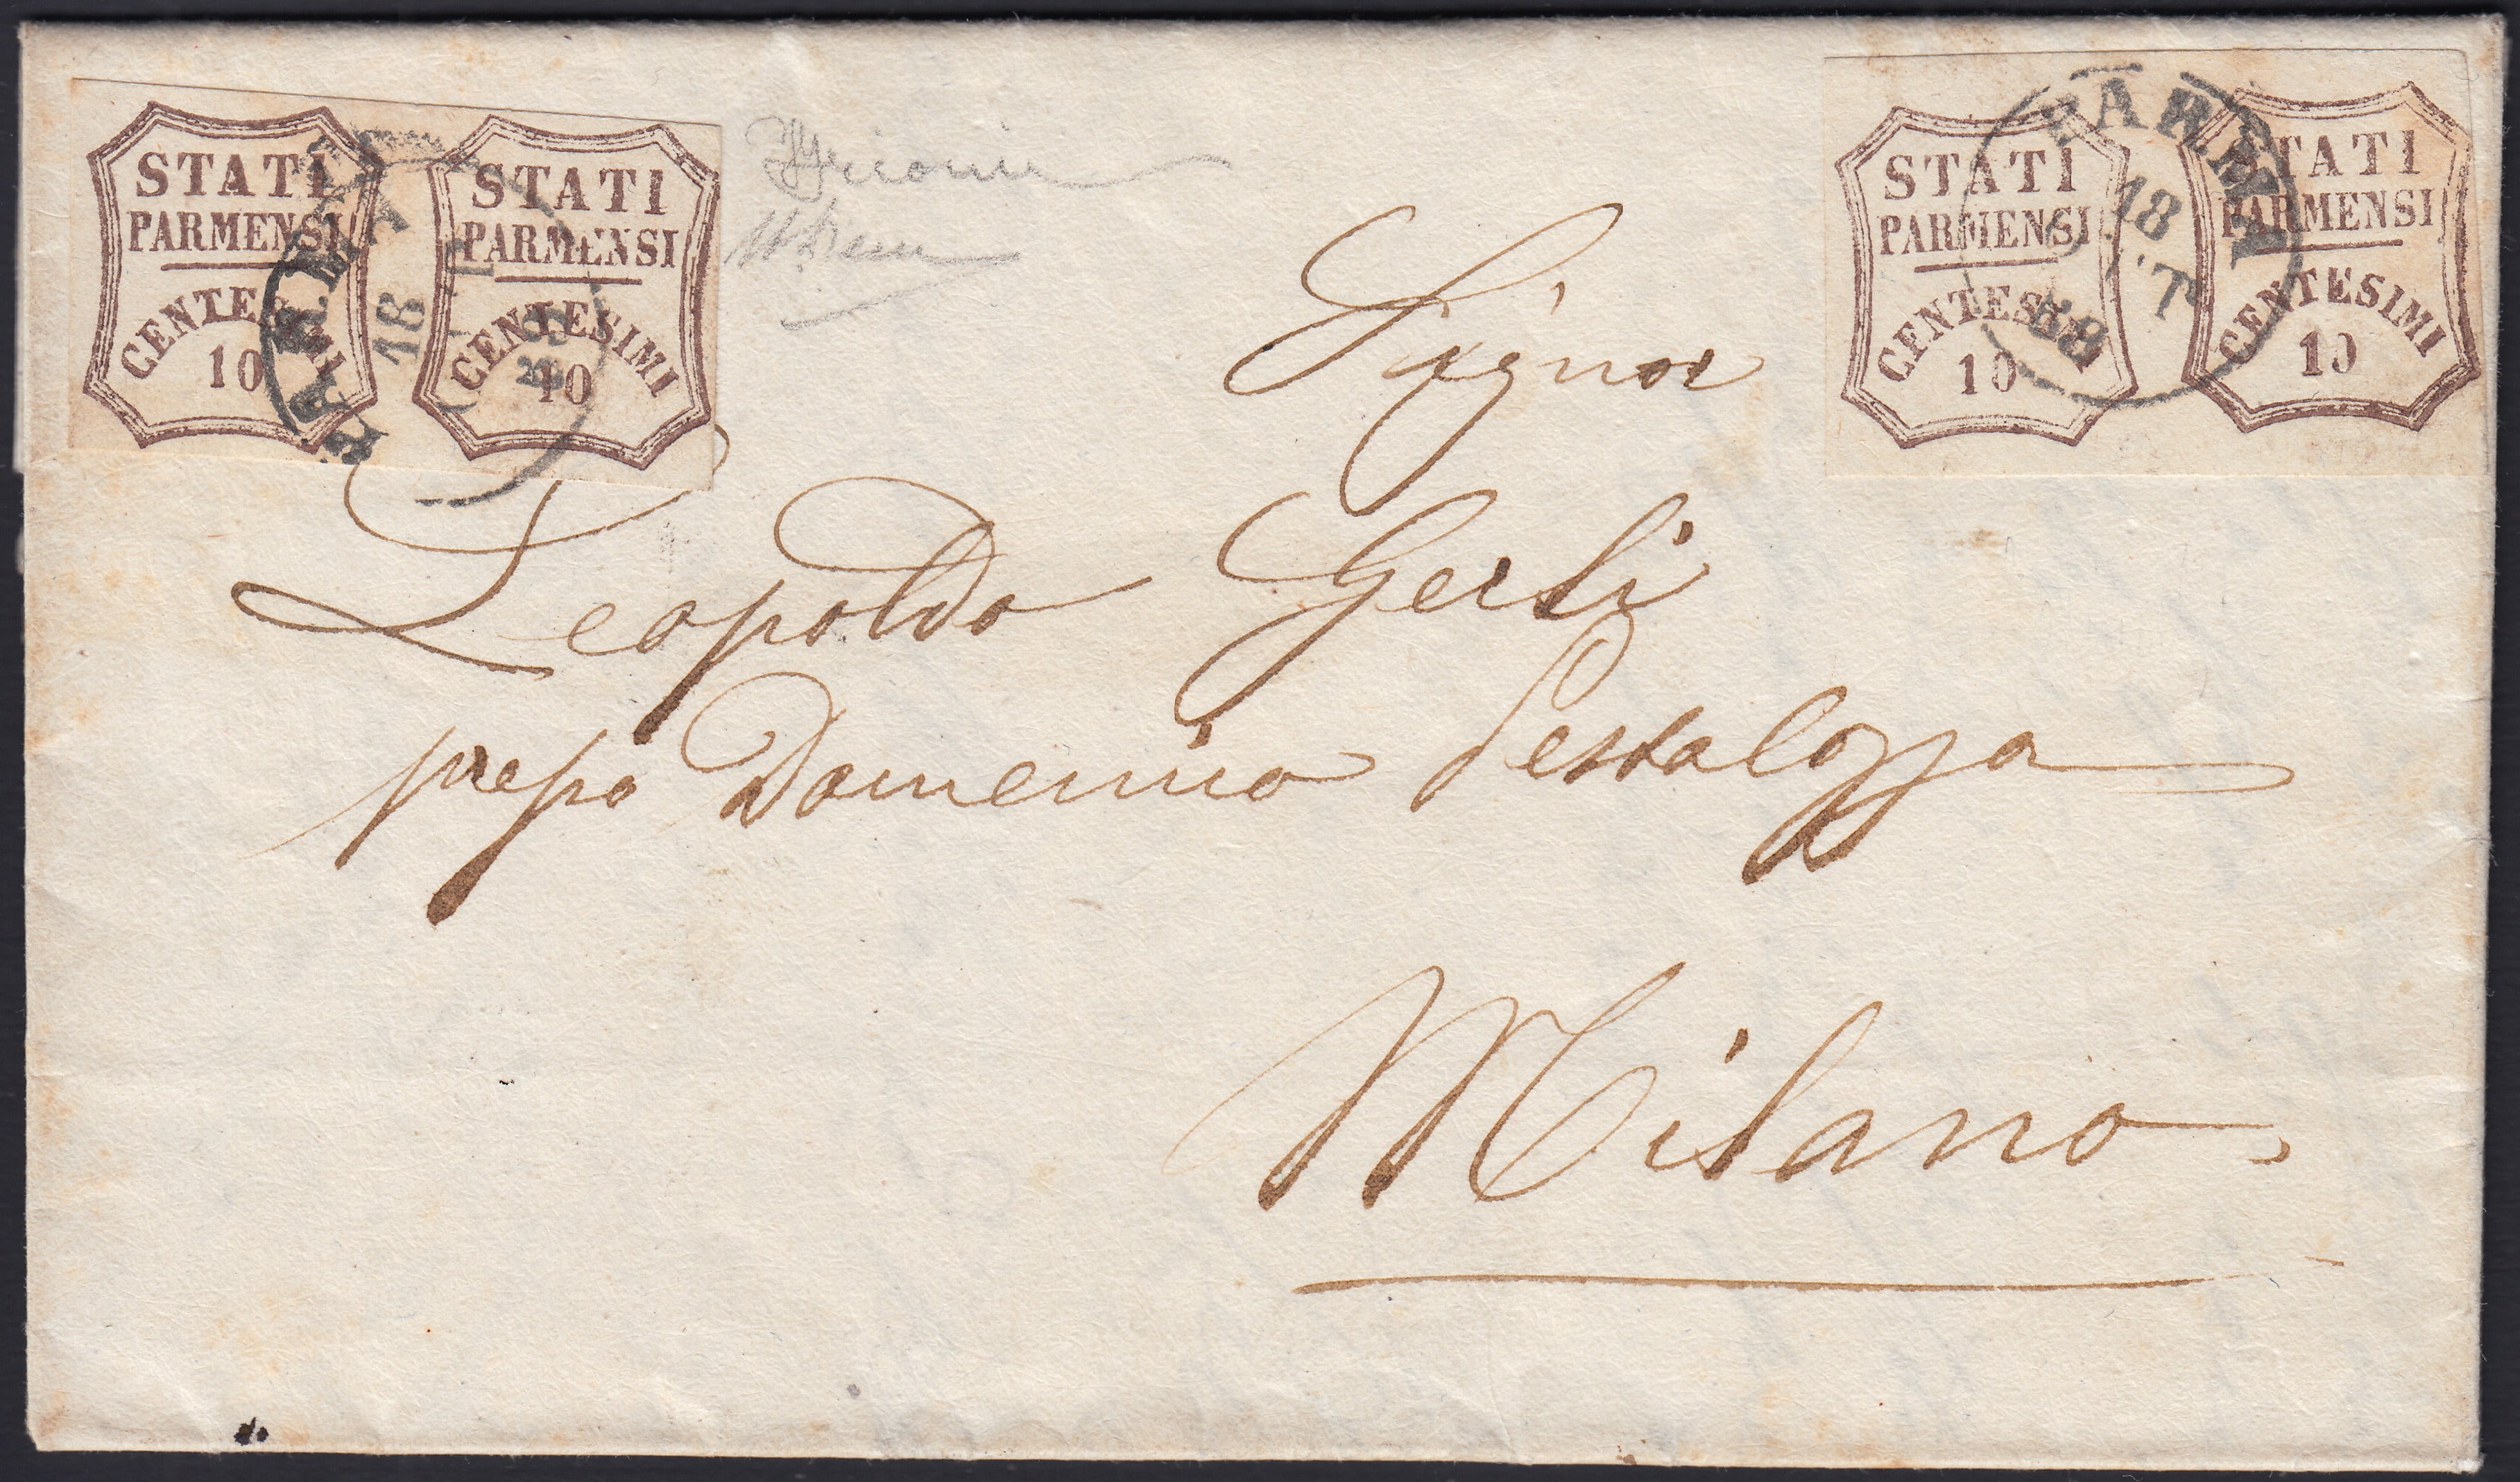 STATI
PARMENSI
CENTESIMI
10
STATI
PARMENSI
CENTESIMI
10
PARMA
18
STATI
PARMENSI
CENTESIMI
10
STATI
PARMENSI
CENTESIMI
10
PARMA
18
Signor
Leopoldo Gerli
presso Domenico Pestalozza
Milano